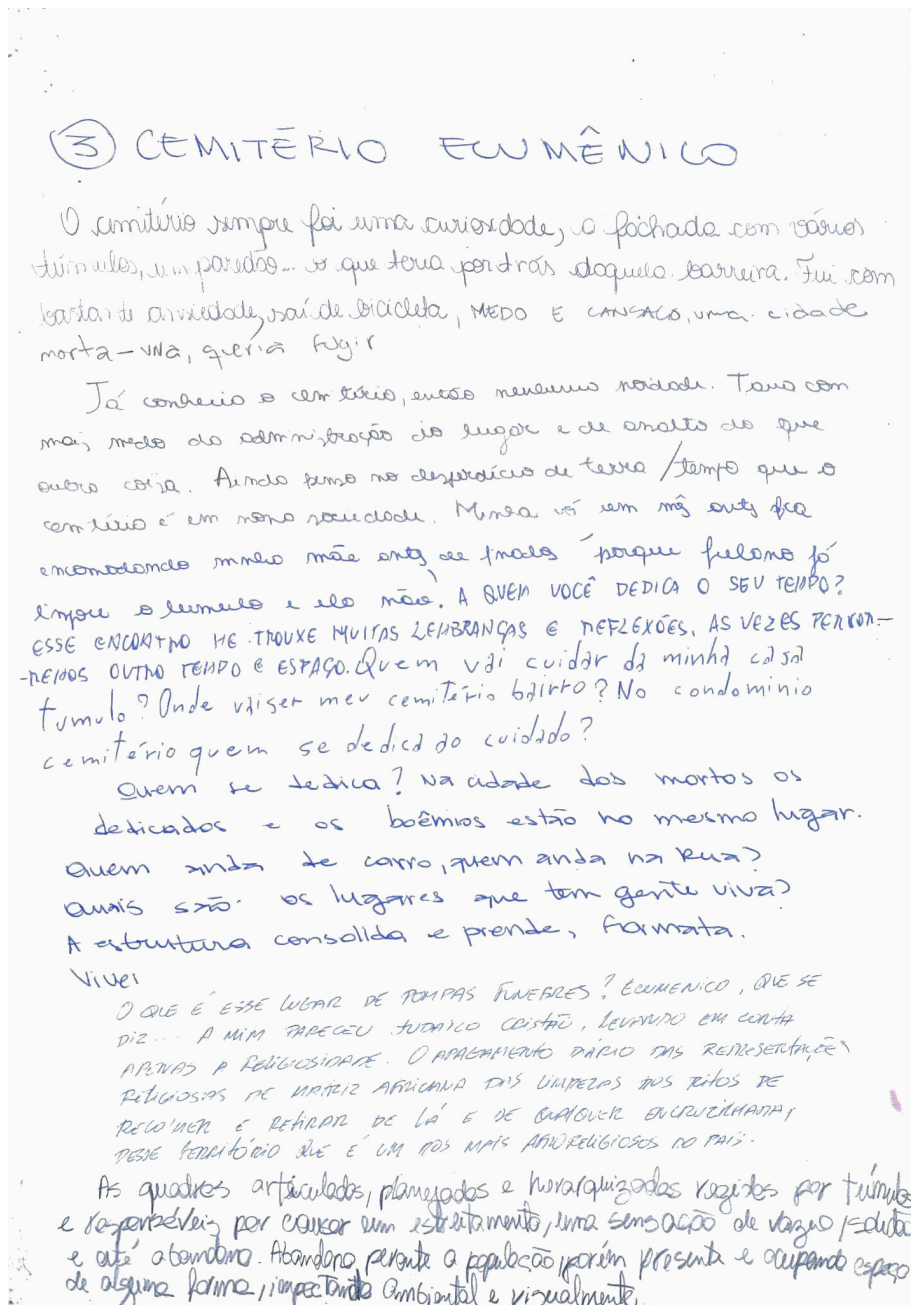 3 CEMITÉRIO ECUMÊNICO
O cemitério sempre foi uma curiosidade, a fachada com vários
túmulos, um paredão... o que teria por trás daquela barreira. Fui com
bastante ansiedade, saí de bicicleta, MEDO E CANSAÇO, uma cidade
morta-viva, queria fugir
Já conhecia o cemitério, então nenhuma novidade. Tava com
mais medo da administração do lugar e de assalto do que
outra coisa. Ainda penso no desperdício de terra/tempo que o
cemitério é em nossa sociedade. Minha vó um mês antes fica
encomodando minha mãe antes de finados "porque fulano já
limpou o tumulo e ela não". A QUEM VOCÊ DEDICA O SEU TEMPO?
ESSE ENCONTRO ME TROUXE MUITAS LEMBRANÇAS E REFLEXÕES. AS VEZES PERCOR-
-REMOS OUTRO TEMPO E ESPAÇO. Quem vai cuidar da minha casa
tumulo? Onde vai ser meu cemitério bairro? No condominio
cemitério quem se dedica ao cuidado?
Quem se dedica? Na cidade dos mortos os
dedicados e os boêmios estão no mesmo lugar.
Quem anda de carro, quem anda na Rua?
Quais são os lugares que tem gente viva?
A estrutura consolida e prende, formata.
Vivei
O QUE É ESSE LUGAR DE POMPAS FUNEBRES? ECUMENICO, QUE SE
DIZ... A MIM PARECEU JUDAICO CRISTÃO, LEVANDO EM CONTA
APENAS A RELIGIOSIDADE. O APAGAMENTO DIÁRIO DAS REPRESENTAÇÕES
RELIGIOSAS DE MATRIZ AFRICANA DAS LIMPEZAS AOS RITOS DE
RECOLHER E RETIRAR DE LÁ E DE QUALQUER ENCRUZILHADA,
DESSE TERRITÓRIO QUE É UM DOS MAIS AFRORELIGIOSOS DO PAÍS.
As quadros articulados, planejados e hierarquizados regidos por túmulos
e responsáveis por causar um estreitamento, uma sensação de vazio, solidão
e até abandono. Abandono, perante a população, porém presente e ocupando espaço
de alguma forma, impactando ambiental e visualmente.